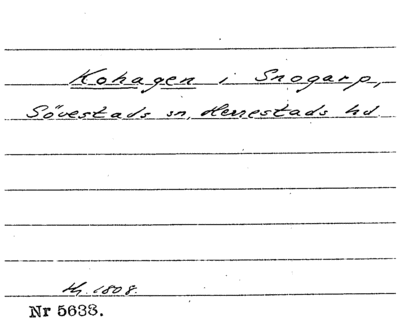 Kohagen i Snogarp,
Sövestads sn, Herrestads hd
th. 1808.
Nr 5633.